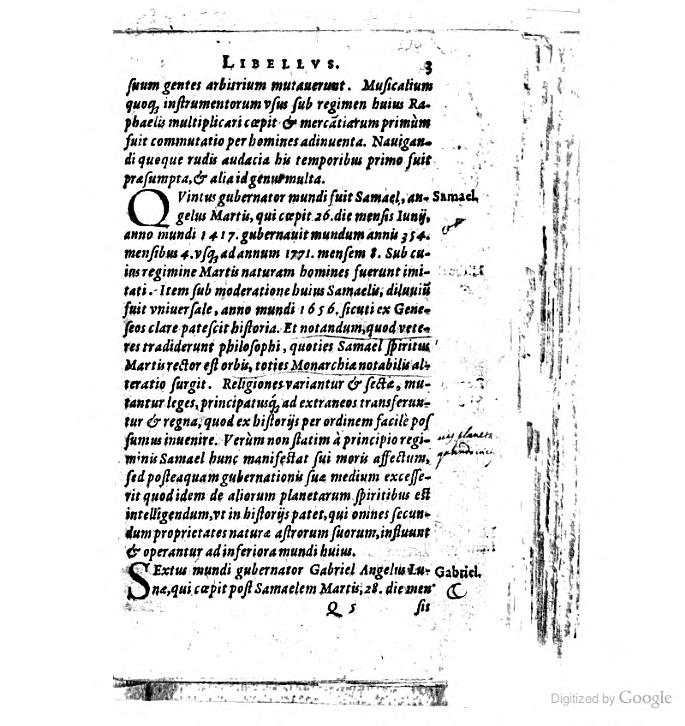 LIBELLVS. 3
suum gentes arbitrium mutauerunt. Musicalium
quoq; instrumentorum vsus sub regimen huius Ra-
phaelis multiplicari cœpit & mercātiarum primùm
fuit commutatio per homines adinuenta. Nauigan-
di quoque rudis audacia his temporibus primo fuit
præsumpta, & alia id genus multa.
QVintus gubernator mundi fuit Samael, an- Samael.
gelus Martis, qui cœpit 26. die mensis Iunij,
anno mundi 1417. gubernauit mundum annis 354.
mensibus 4. vsq; ad annum 1771. mensem 8. Sub cu-
ius regimine Martis naturam homines fuerunt imi-
tati. Item sub moderatione huius Samaelis, diluuiū
fuit vniuersale, anno mundi 1656. sicuti ex Gene-
seos clare patescit historia. Et notandum, quod vete-
res tradiderunt philosophi, quoties Samael spiritus
Martis rector est orbis, toties Monarchia notabilis al-
teratio surgit. Religiones variantur & sectæ, mu-
tantur leges, principatusq; ad extraneos transferun-
tur & regna, quod ex historijs per ordinem facilè pos
sumus inuenire. Verùm non statim à principio regi-
minis Samael hunc manifestat sui moris affectum,
sed posteaquam gubernationis suæ medium excesse-
rit quod idem de aliorum planetarum spiritibus est
intelligendum, vt in historijs patet, qui omines secun-
dum proprietates naturæ astrorum suorum, influunt
& operantur ad inferiora mundi huius.
SExtus mundi gubernator Gabriel Angelus Lu- Gabriel.
næ, qui cœpit post Samaelem Martis, 28. die men
Q 5 sis
Digitized by Google